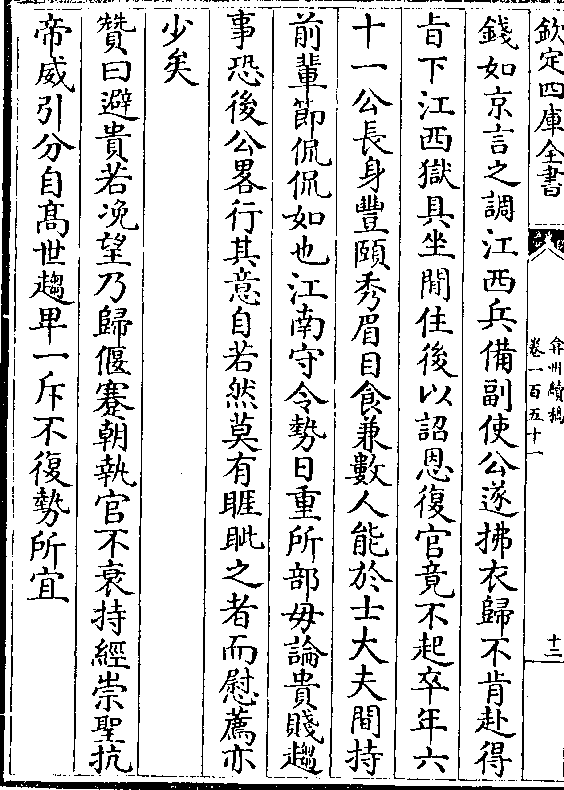 欽定四庫全書
弇州續稿
卷一百五十一
十三
錢如京言之調江西兵備副使公遂拂衣歸不肯赴得
㫖下江西獄具坐閒住後以詔恩復官竟不起卒年六
十一公長身豐頤秀眉目食兼數人能於士大夫間持
前輩節侃侃如也江南守令勢日重所部毋論貴賤趨
事恐後公畧行其意自若然莫有睚眦之者而慰薦亦
少矣
贊曰避貴若浼望乃歸偃蹇朝執官不衰持經崇聖抗
帝威引分自髙世趨卑一斥不復勢所宜